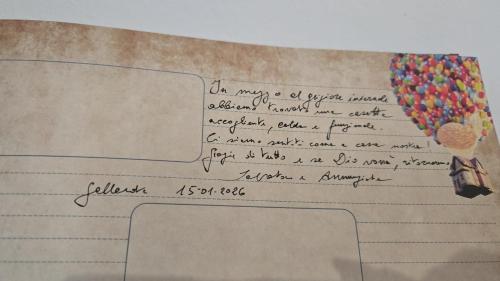 In mezzo al grigiore invernale
abbiamo trovato una casetta
accogliente, calda e funzionale.
Ci siamo sentiti come a casa nostra!
Grazie di tutto e se Dio vorrà, ritorneremo
Salvatore e Annunziata
15-01-2026